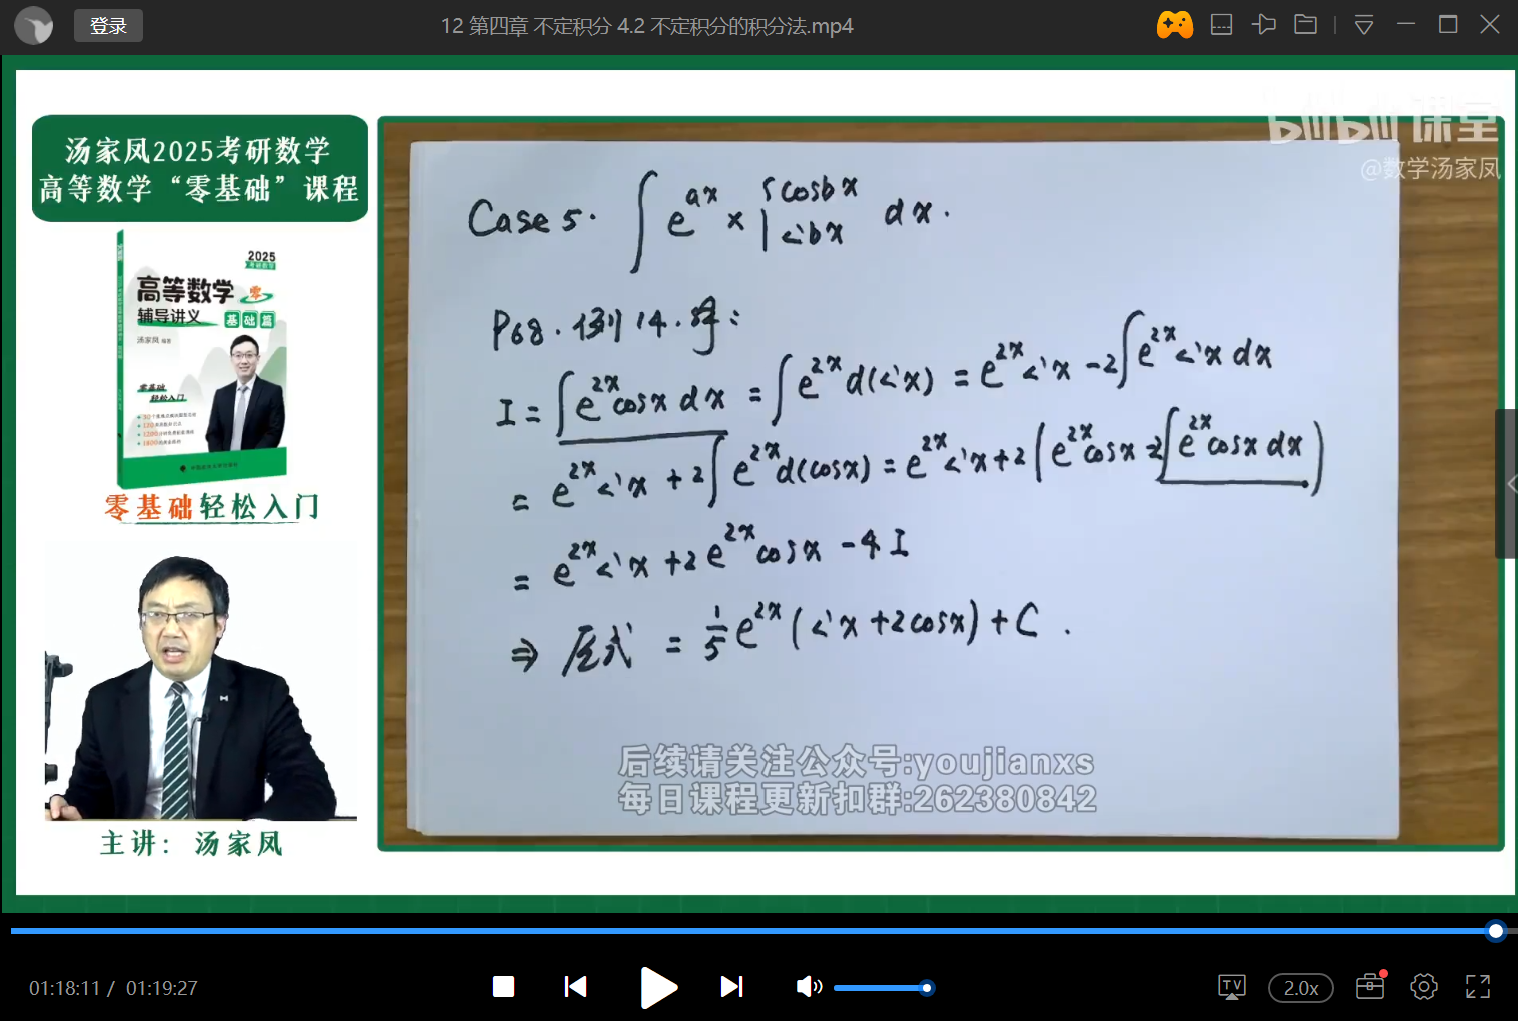 登录
12 第四章 不定积分 4.2 不定积分的积分法.mp4
汤家凤2025考研数学
高等数学“零基础”课程
2025
高等数学 零
辅导讲义 基础篇
汤家凤 编著
零基础
轻松入门
零基础轻松入门
主讲：汤家凤
bilibili 课堂
@数学汤家凤
Case 5. ∫ e^{ax} × { cosbx / sinbx dx.
P68. 例14. 解：
I = ∫ e^{2x} cosx dx = ∫ e^{2x} d(sinx) = e^{2x} sinx - 2∫ e^{2x} sinx dx
= e^{2x} sinx + 2∫ e^{2x} d(cosx) = e^{2x} sinx + 2(e^{2x} cosx - 2∫ e^{2x} cosx dx)
= e^{2x} sinx + 2e^{2x} cosx - 4I
⇒ 原式 = 1/5 e^{2x} (sinx + 2cosx) + C.
后续请关注公众号:youjianxs
每日课程更新扣群:262380842
01:18:11 / 01:19:27
TV
2.0x